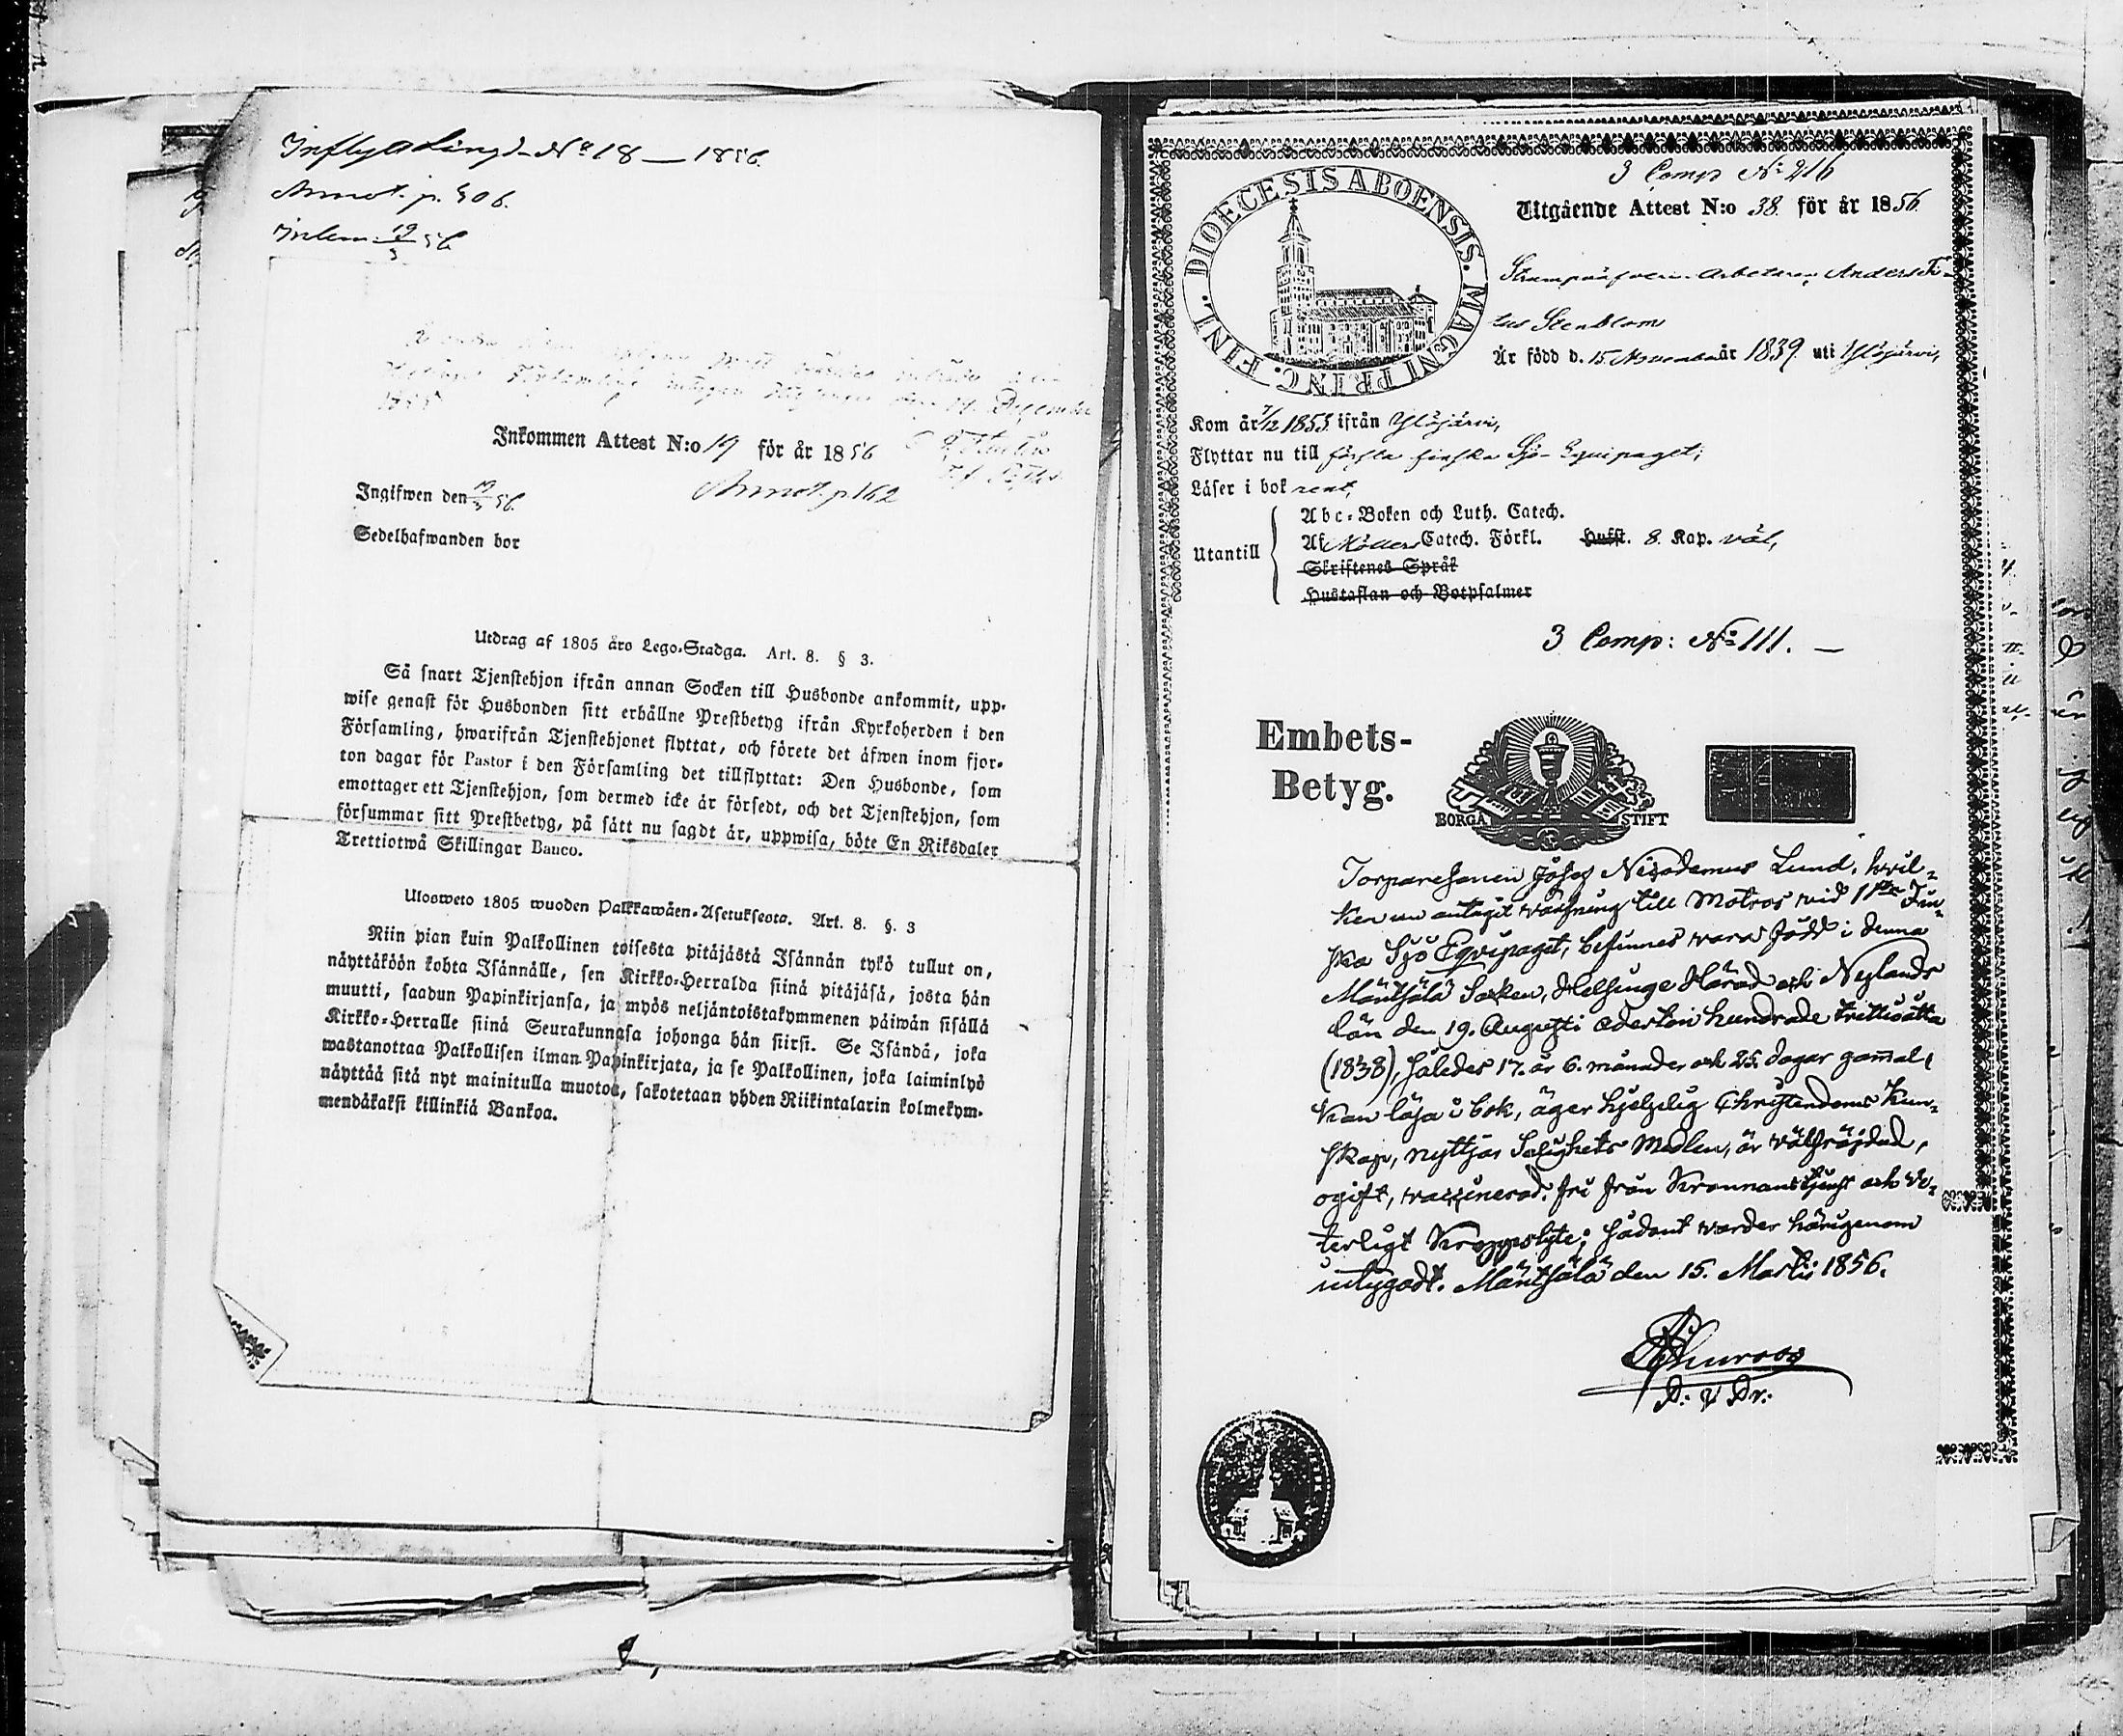 Inflyttningd. No 18 — 1856.
Annot. p. 306.
Inlem. 19/3 56.
December
1855
Inkommen Attest N:o 19 för år 1856
Annot. p. 162
Ingifwen den 19/3 56.
Sedelhafwanden bor
Utdrag af 1805 års Lego-Stadga. Art. 8. § 3.
Så snart Tjenstehjon ifrån annan Socken till Husbonde ankommit, upp-
wise genast för Husbonden sitt erhållne Prestbetyg ifrån Kyrkoherden i den
Församling, hwarifrån Tjenstehjonet flyttat, och förete det äfwen inom fjor-
ton dagar för Pastor i den Församling det tillflyttat: Den Husbonde, som
emottager ett Tjenstehjon, som dermed icke är försedt, och det Tjenstehjon, som
försummar sitt Prestbetyg, på sätt nu sagdt är, uppwisa, böte En Riksdaler
Trettiotwå Skillingar Banco.
Ulosweto 1805 wuoden Palkkawäen-Asetuksesta. Art. 8. §. 3
Niin pian kuin Palkollinen toisesta pitäjästä Isännän tykö tullut on,
näyttäköön kohta Isännälle, sen Kirkko-Herralda siinä pitäjäsä, josta hän
muutti, saadun Papinkirjansa, ja myös neljäntoistakymmenen päiwän sisällä
Kirkko-Herralle siinä Seurakunnasa johonga hän siirsi. Se Isändä, joka
wastanottaa Palkollisen ilman Papinkirjata, ja se Palkollinen, joka laiminlyö
näyttää sitä nyt mainitulla muotoa, sakotetaan yhden Riikintalarin kolmekym-
mendäkaksi killinkiä Bankoa.
3 Comp No 216
DIOECESIS ABOENSIS. MAGNI PRINC. FINL.
Utgående Attest N:o 38. för år 1856
arbetaren Anders Ti-
tus Stenblom
Är född d. 15 November år 1839. uti Ylöjärvi,
Kom år 7/12 1853 ifrån Ylöjärvi,
Flyttar nu till första finska Sjö-Equipaget;
Läser i bok rent,
Abc-Boken och Luth. Catech.
Utantill
Af Möllers Catech. Förkl. Hufst. 8. Kap. väl,
Skriftenes Språk
Hustaflan och Botpsalmer
3 Comp: No 111. —
Embets-
Betyg.
BORGÅ STIFT
Torparesonen Josef Nicodemus Lund, hvil-
ken nu antagit värfning till Matros vid 1sta Fin-
ska Sjö Eqvipaget, befinnes vara född i denna
Mäntsälä Socken, Helsinge Härad och Nylands
län den 19. Augusti Adertonhundrade trettioåtta
(1838), således 17. år 6. månader och 25. dagar gammal,
kan läsa i bok, äger hjelpelig Christendoms kun-
skap, nyttjar Salighets Medlen, är välfräjdad,
ogift, vaccinerad, fri från Kronans tjenst och ve-
terligt Kroppslyte; sådant varder härigenom
intygadt. Mäntsälä den 15. Martii 1856.